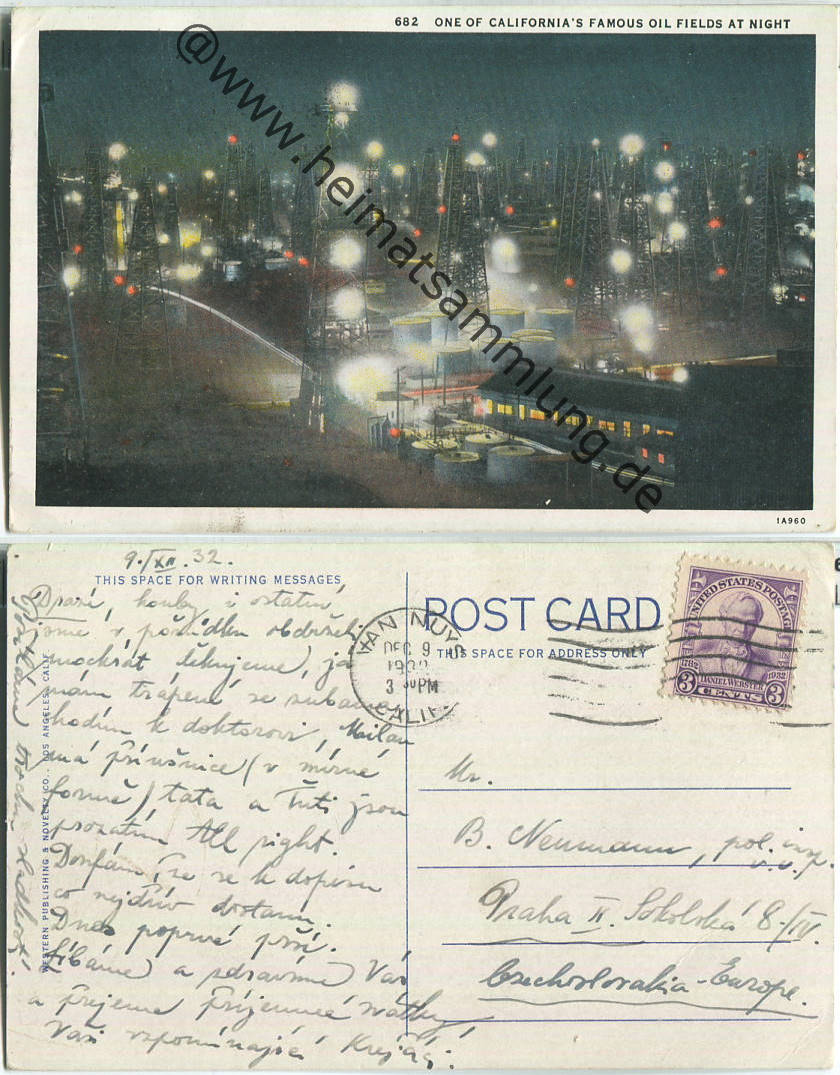 682 ONE OF CALIFORNIA'S FAMOUS OIL FIELDS AT NIGHT
@www.heimatsammlung.de
1A960
9./XII.32.
THIS SPACE FOR WRITING MESSAGES
Drazí, houby i ostatní,
jsme v pořádku obdrželi
mockrát děkujeme, já
mám trápení se zubama
chodím k doktorovi, Milan
má příušnice (v mírné
formě) táta a Tuti jsou
prozatím All right.
Doufám, že se k dopisu
co nejdřív dostanu.
Dnes poprvé prší.
Líbáme a zdravíme Vás
a přejeme příjemné svátky,
Vaši vzpomínající Krejčí.
WESTERN PUBLISHING & NOVELTY CO., LOS ANGELES, CALIF.
POST CARD
THIS SPACE FOR ADDRESS ONLY
VAN NUYS
DEC 9
1932
3 30 PM
CALIF.
UNITED STATES POSTAGE
1782 1932
DANIEL WEBSTER
3 CENTS 3
Mr.
B. Neumann, pol. insp.
v.v.
Praha II. Sokolská 8/IV.
Czechoslovakia-Europe.